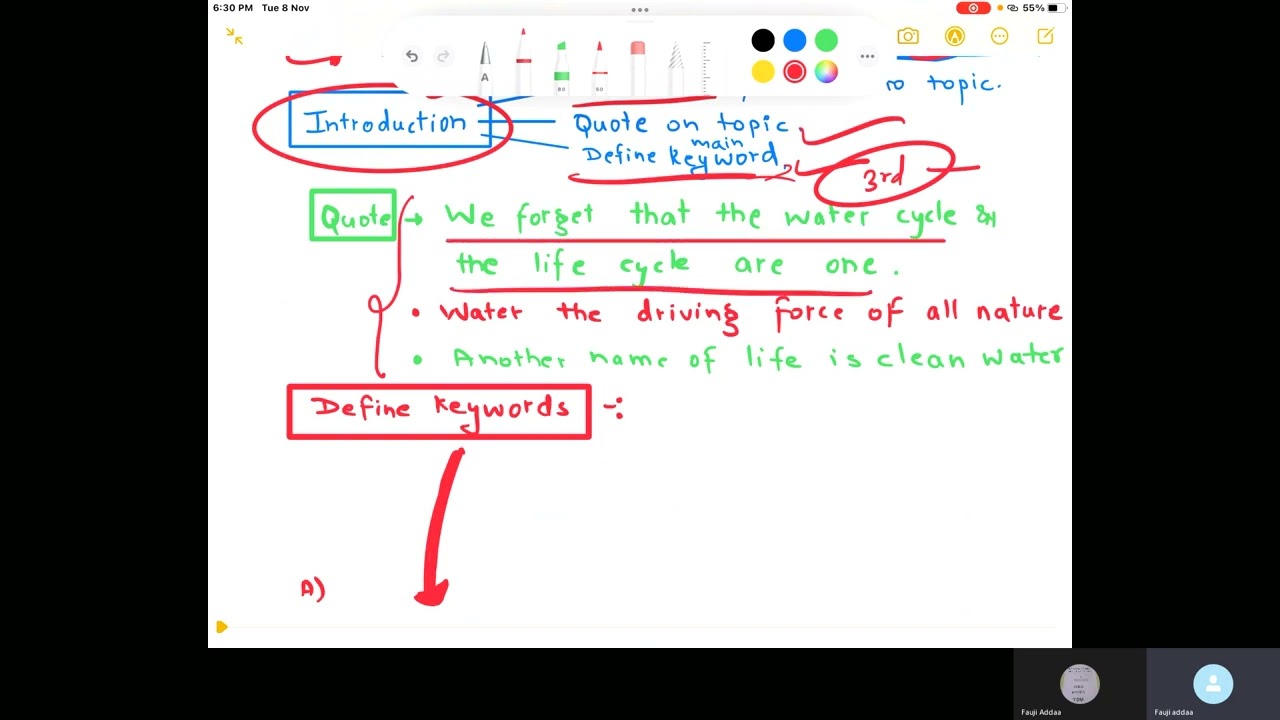 6:30 PM Tue 8 Nov
55%
A
80
50
to topic.
Introduction
Quote on topic
main
Define keyword
3rd
Quote → We forget that the water cycle &
the life cycle are one.
• Water the driving force of all nature
• Another name of life is clean water
Define keywords -:
A)
Fauji Addaa
Fauji addaa